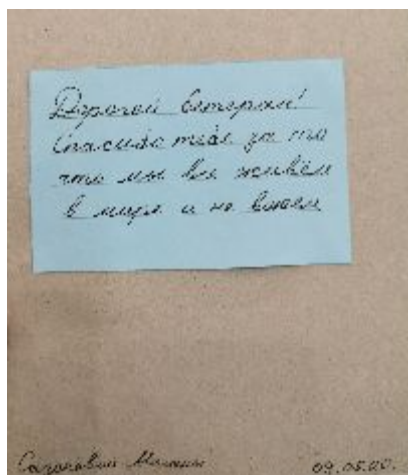 Дорогой ветеран!
Спасибо тебе за то
что мы все живём
в мире и не воюем
09.05.00.